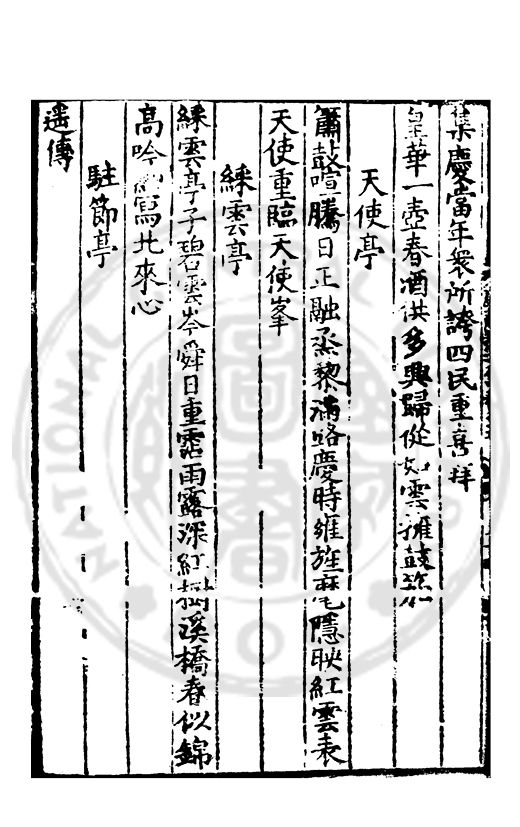 集慶當年衆所誇四民重喜拜
皇華一壺春酒供多興歸從如雲擁鼓
天使亭
簫鼓喧騰日正融烝黎滿路慶時雍旌旄隱映紅雲表
天使重臨天使峯
綵雲亭
綵雲亭子碧雲岑舜日重霑雨露深紅樹溪橋春似錦
高吟寫北來心
駐節亭
遥傳